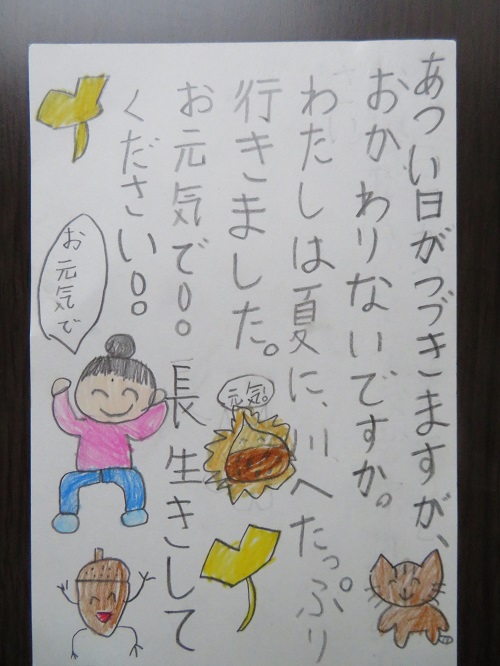 あつい日がつづきますが、
おかわりないですか。
わたしは夏に、川へたっぷり
行きました。
お元気で!!。長生きして
ください!!。
お元気で
元気。